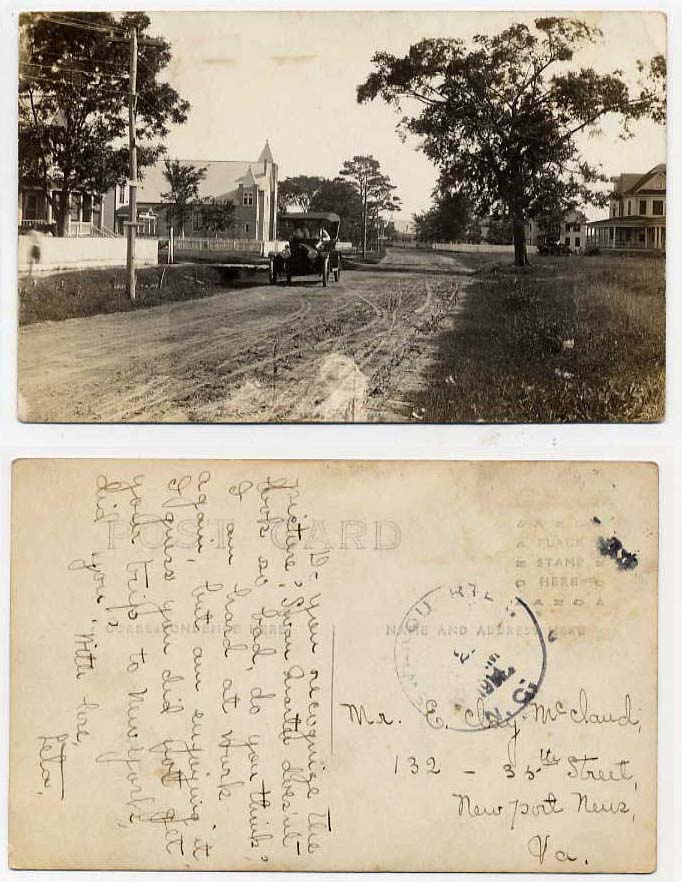 POST CARD
CORRESPONDENCE HERE
NAME AND ADDRESS HERE
PLACE
STAMP
HERE
Do you recognize the
picture, Swan Quarter does'nt
look so bad, do you think,
I am hard at work
again, but am enjoying it
I guess you did not get
your trip to New york,
did you,
With love,
Leta,
Mr. E. Clay McClaud,
132 - 35th Street,
Newport News,
Va.